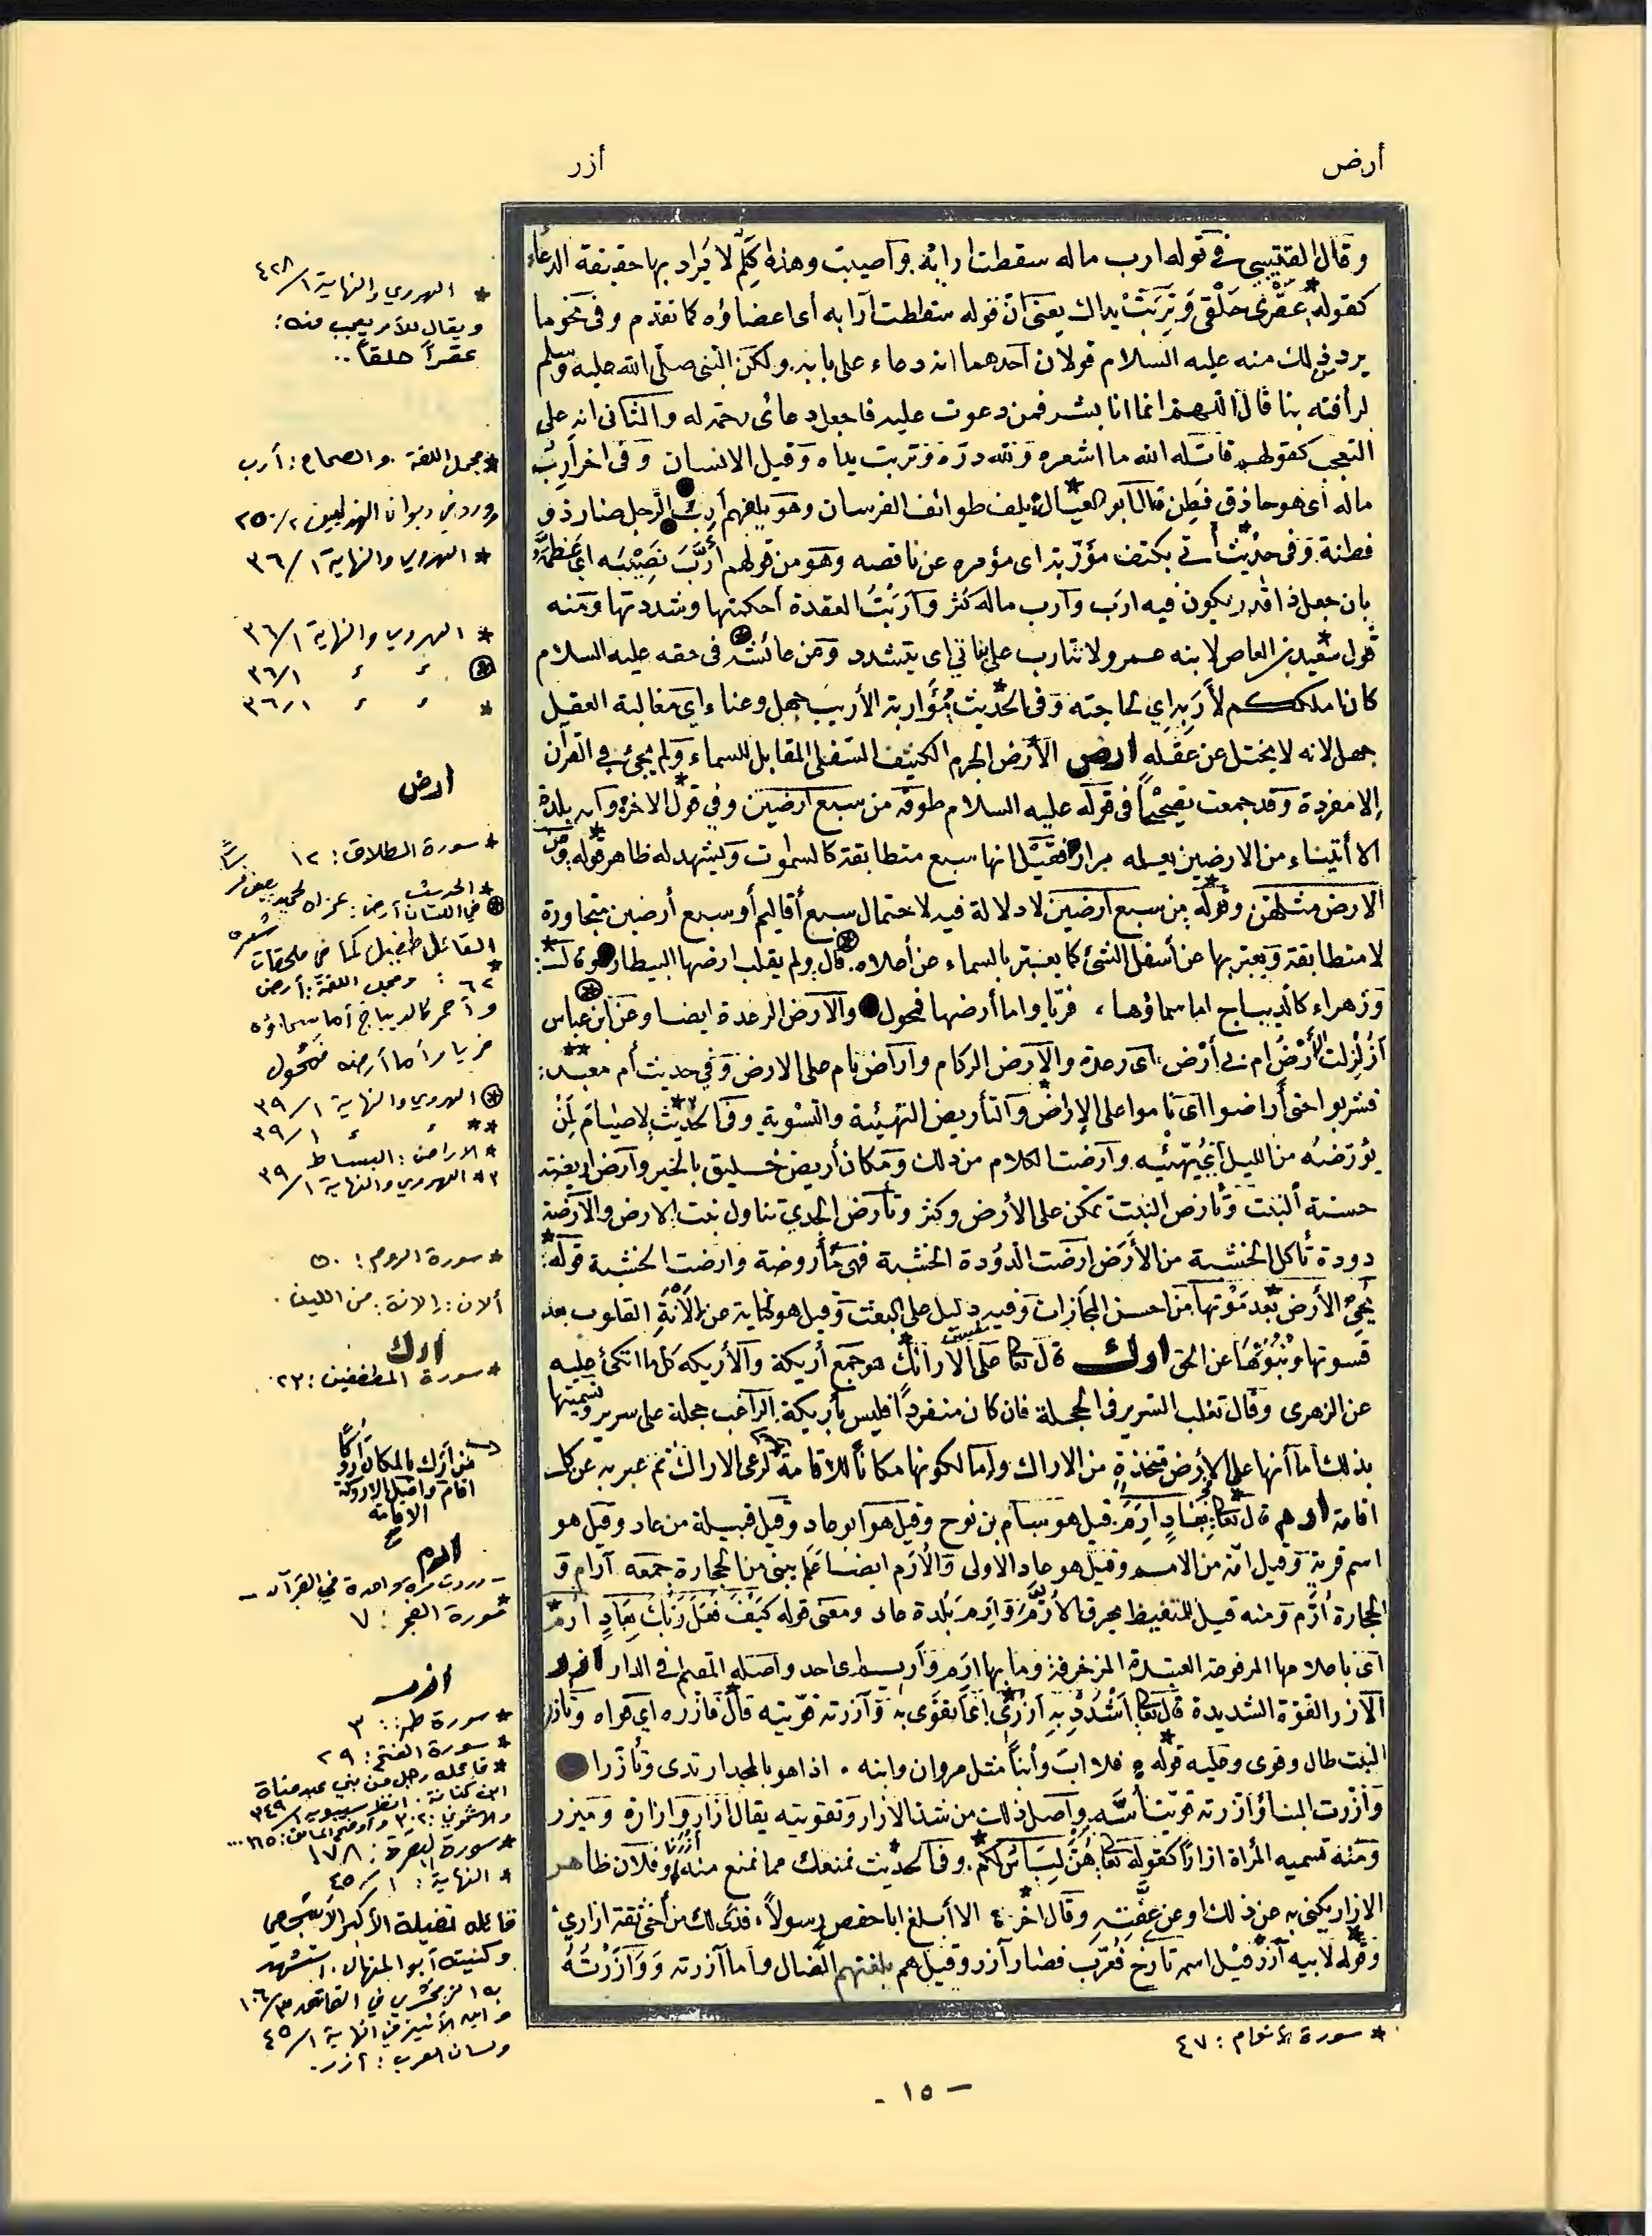 أرض
أزر
وقال القتيبي في قوله ارب ماله سقطت ارابه وأصيبت وهذه كلم لا يراد بها حقيقة الدعاء
كقوله عقرى حلقى وتربت يداك يعنى ان قوله سقطت آرابه أى اعضاؤه كما تقدم وفى نحو ما
يرد من ذلك منه عليه السلام قولان احدهما انه دعاء على بابه ولكن النبى صلى الله عليه وسلم
لرأفته بنا قال اللهم انما انا بشر فمن دعوت عليه فاجعل دعائى رحمة له والثانى انه على
التعجب كقولهم قاتله الله ما اشعره ولله دره وتربت يداه وقيل الانسان وفى اخر أرب
ماله أى هو حاذق فطن قال أبو العيال يلف طوائف الفرسان وهو بلفهم أرب الرجل صار ذو
فطنة وفى حديث أتى بكتف مؤربة اى موفره عن ناقصه وهو من قولهم أرب نصيبه اى عظمه
بان جعل ذا قدر يكون فيه ارب وآرب ماله كثر وآربت العقدة احكمتها وشددتها ومنه
قول سعيد بن العاص لابنه عمرو لا تتارب على بناتي اى يتشدد وعن عائشة فى حقه عليه السلام
كان املككم لأربه اي لحاجته وفى الحديث مؤاربة الأريب جهل وعناء اى مغالبة العقيل
جهل لانه لا يختل عن عقله ارض الأرض الجرم الكثيف السفلى المقابل للسماء ولم يجئ في القرآن
إلا مفردة وقد جمعت تصحيحا فى قوله عليه السلام طوقه من سبع ارضين وفي قول الاخر وأيه بلدة
الا أتيناء من الارضين يعلمه مرار فقيل انها سبع متطابقة كالسموات ويشهد له ظاهر قوله ومن
الارض مثلهن وقوله من سبع ارضين لا دلالة فيه لاحتمال سبع أقاليم أو سبع أرضين متجاورة
لا متطابقة ويعتبر بها عن أسفل الشئ كما يعتبر بالسماء عن أعلاه قال ولم يقلب ارضها البيطار وقال
وزهراء كالديباج اما سماؤها ، فريا واما أرضها فمحول والارض الرعدة ايضا وعن ابن عباس
أزلزلت الأرض ام بي أرض اى رعدة والارض الزكام وآراض نام على الارض وفي حديث أم معبد
فشربوا حتى أراضوا اى ناموا على الإراض والتأريض التهيئة والتسوية وفى الحديث لا صيام لمن
يؤرضه من الليل أي يهيئه وآرضت الكلام من ذلك ومكان أريض خليق بالخير وأرض اريضة
حسنة النبت وتأرض النبت تمكن على الأرض وكثر وتأرض الجدي تناول نبت الارض والارضة
دودة تأكل الخشبة من الأرض ارضت الدودة الخشبة فهى مأروضة وارضت الخشبة قوله
يحي الأرض بعد موتها من احسن المجازات وفيه دليل على البعث وقيل هو كناية عن إلانة القلوب بعد
قسوتها ونبوتها عن الحق ارك قال تعالى على الأرائك هو جمع أريكة والأريكة كل ما اتكئ عليه
عن الزهرى وقال ثعلب السرير فى الحجلة فان كان منفردا فليس بأريكة الراغب حجلة على سرير وتسميتها
بذلك اما أنها على الارض متخذة من الاراك واما لكونها مكانا للاقامة لرعى الاراك ثم عبر به عن كل
اقامة ارم قال تعالى بعاد ارم قيل هو سام بن نوح وقيل هو أبو عاد وقيل قبيلة من عاد وقيل هو
اسم قرية وقيل امة من الامم وقيل هو عاد الاولى والأرم ايضا علم يبنى من الحجارة جمعه آرام و
الحجارة أرم ومنه قيل للمتغيظ يحرق الأرم وارم بلدة عاد ومعنى قوله كيف فعل ربك بعاد ارم
اى باعلامها المرفوعة المزخرفة وما بها ارم وأريم اى احد واصله المقيم فى الدار ازر
الازر القوة الشديدة قال تعالى اشدد به ازرى اى أتقوى به وآزرته قويته قال فآزره اي قواه وتأزر
النبت طال وقوى وعليه قوله فلا اب وأبنا مثل مروان وابنه ، اذا هو بالمجد ارتدى وتأزرا
وآزرت البناء وأزرته قويت أسه واصل ذلك من شد الازار وتقويته يقال ازار وازارة وميزر
ومنه تسميه المرأة ازارا كقوله تعالى هن لباس لكم وفى الحديث نمنعك مما نمنع منه أزرنا وفلان طاهر
الازار يكنى به عن ذلك او عن عفته وقال اخر الا أبلغ ابا حفص رسولا ، فدى لك من أخى ثقة ازاري
وقوله لابيه آزر قيل اسمه تارخ فعرب فصار آزر وقيل هم بلغتهم الضال واما آزرته ووازرته
* الهروي والنهاية ١/ ٤٢٨
ويقال للأمر يعجب منه :
عقراً حلقاً ..
* مجمل اللغة والصحاح : أرب
وورد في ديوان الهذليين ٢/ ٢٥٠
* الهروي والنهاية ١/ ٣٦
* الهروي والنهاية ١/ ٣٦
٣٦/١
* ٣٦/١
ارض
* سورة الطلاق : ١٢
* الحديث
في اللسان أرض :
القائل طفيل كما في ملحقات
٦٢ : ومجمل اللغة : أرض
وأحمر كالديباج أما سماؤه
فريا وأما أرضه فمحول
الهروي والنهاية ١/ ٣٩
** ١/ ٣٩
* الاراض : البساط
*٢ الهروي والنهاية ١/ ٣٩
* سورة الروم : ٥٠
ألان : إلانة : من اللين .
ارك
* سورة المطففين : ٢٣
من أرك بالمكان أروكا
اقام وأصل الاروك
الاقامة
ارم
- وردت مرة واحدة في القرآن -
* سورة الفجر : ٧
ازر
* سورة طه : ٣١
* سورة الفتح : ٢٩
* قائله رجل من بني عبد مناة
ابن كنانة . انظر سيبويه ١/ ٣٤٩
* سورة البقرة : ١٧٨
* النهاية : ١/ ٤٥
قائله نفيلة الأكبر الأشجعي
وكنيته أبو المنهال . استشهد
به الزمخشري في الفائق
وابن الأثير في النهاية ١/ ٤٥
ولسان العرب : أزر .
* سورة الأنعام : ٤٧
- ١٥ -